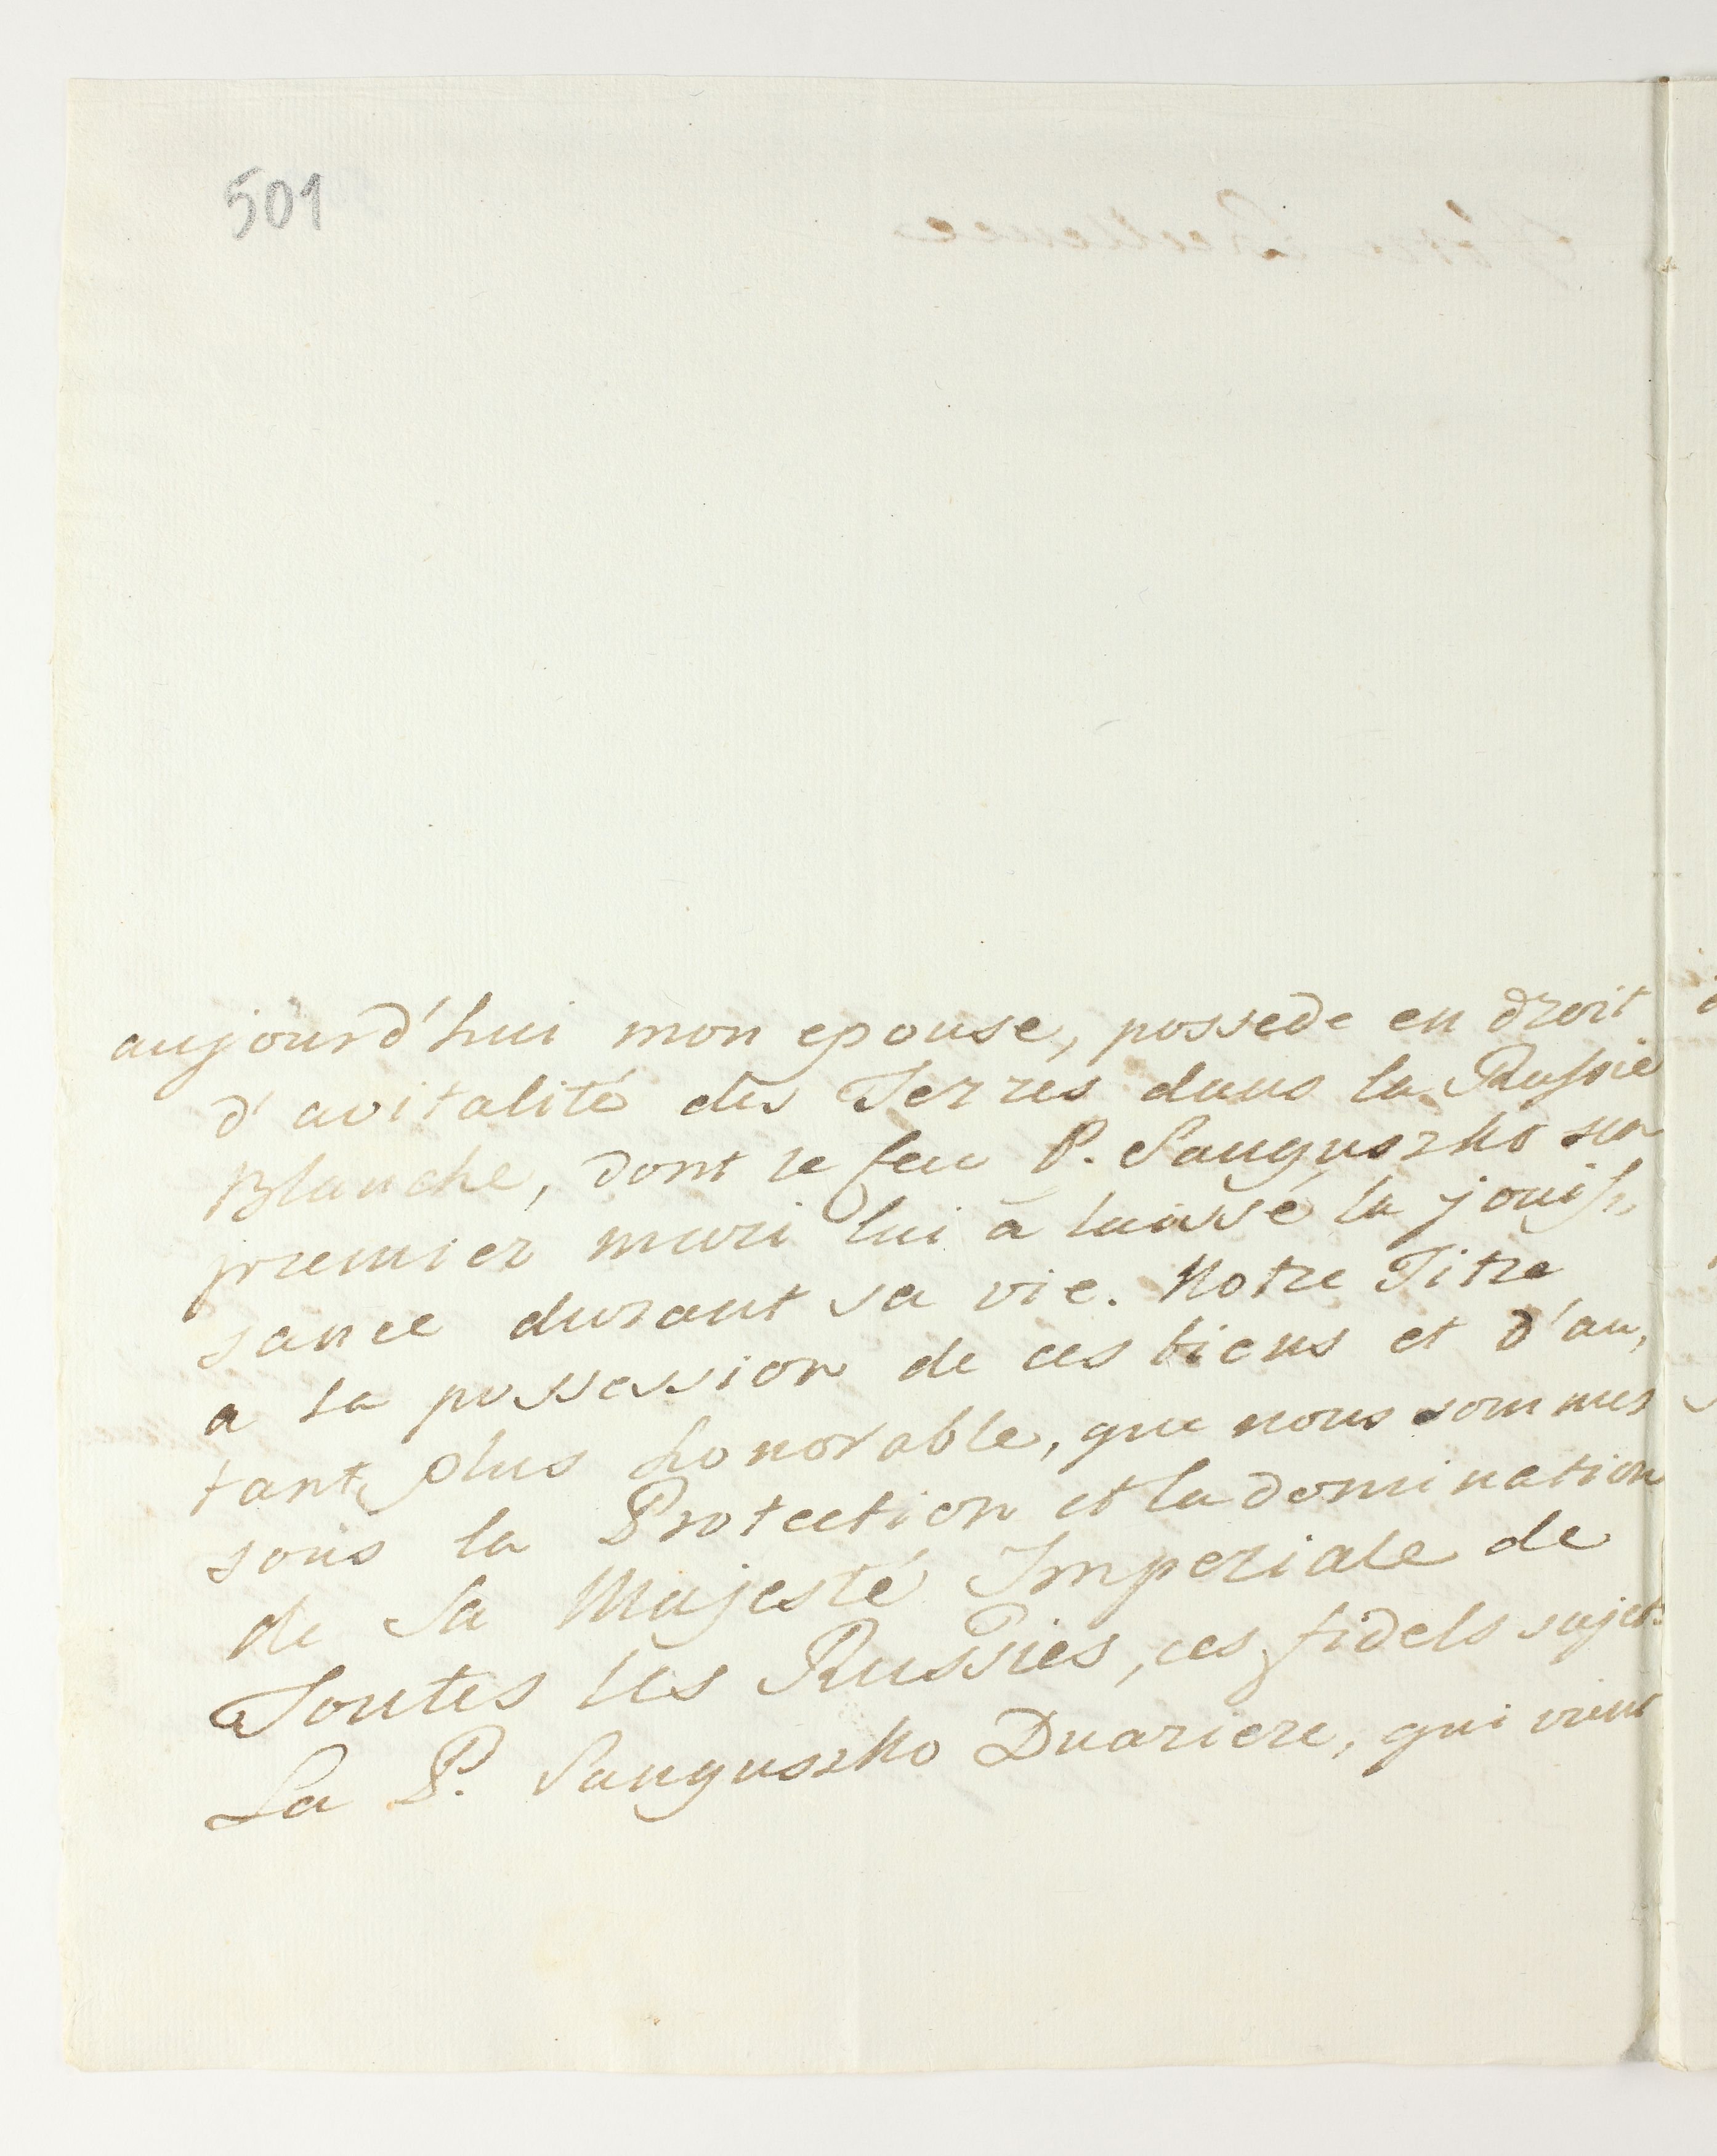 501
aujourd'hui mon epouse, possede en droit
d'avitalité des Terres dans la Russie
Blanche, dont le feu P. Sanguszko son
premier mari lui à laissé la jouis,
sance durant sa vie. Notre Titre
a la possession de ces biens et d'au,
tant plus honorable, que nous sommes
sous la Protection et la domination
de Sa Majesté Imperiale de
Toutes les Russies, ces fidels sujets
La P. Sanguszko Duariere, qui vient